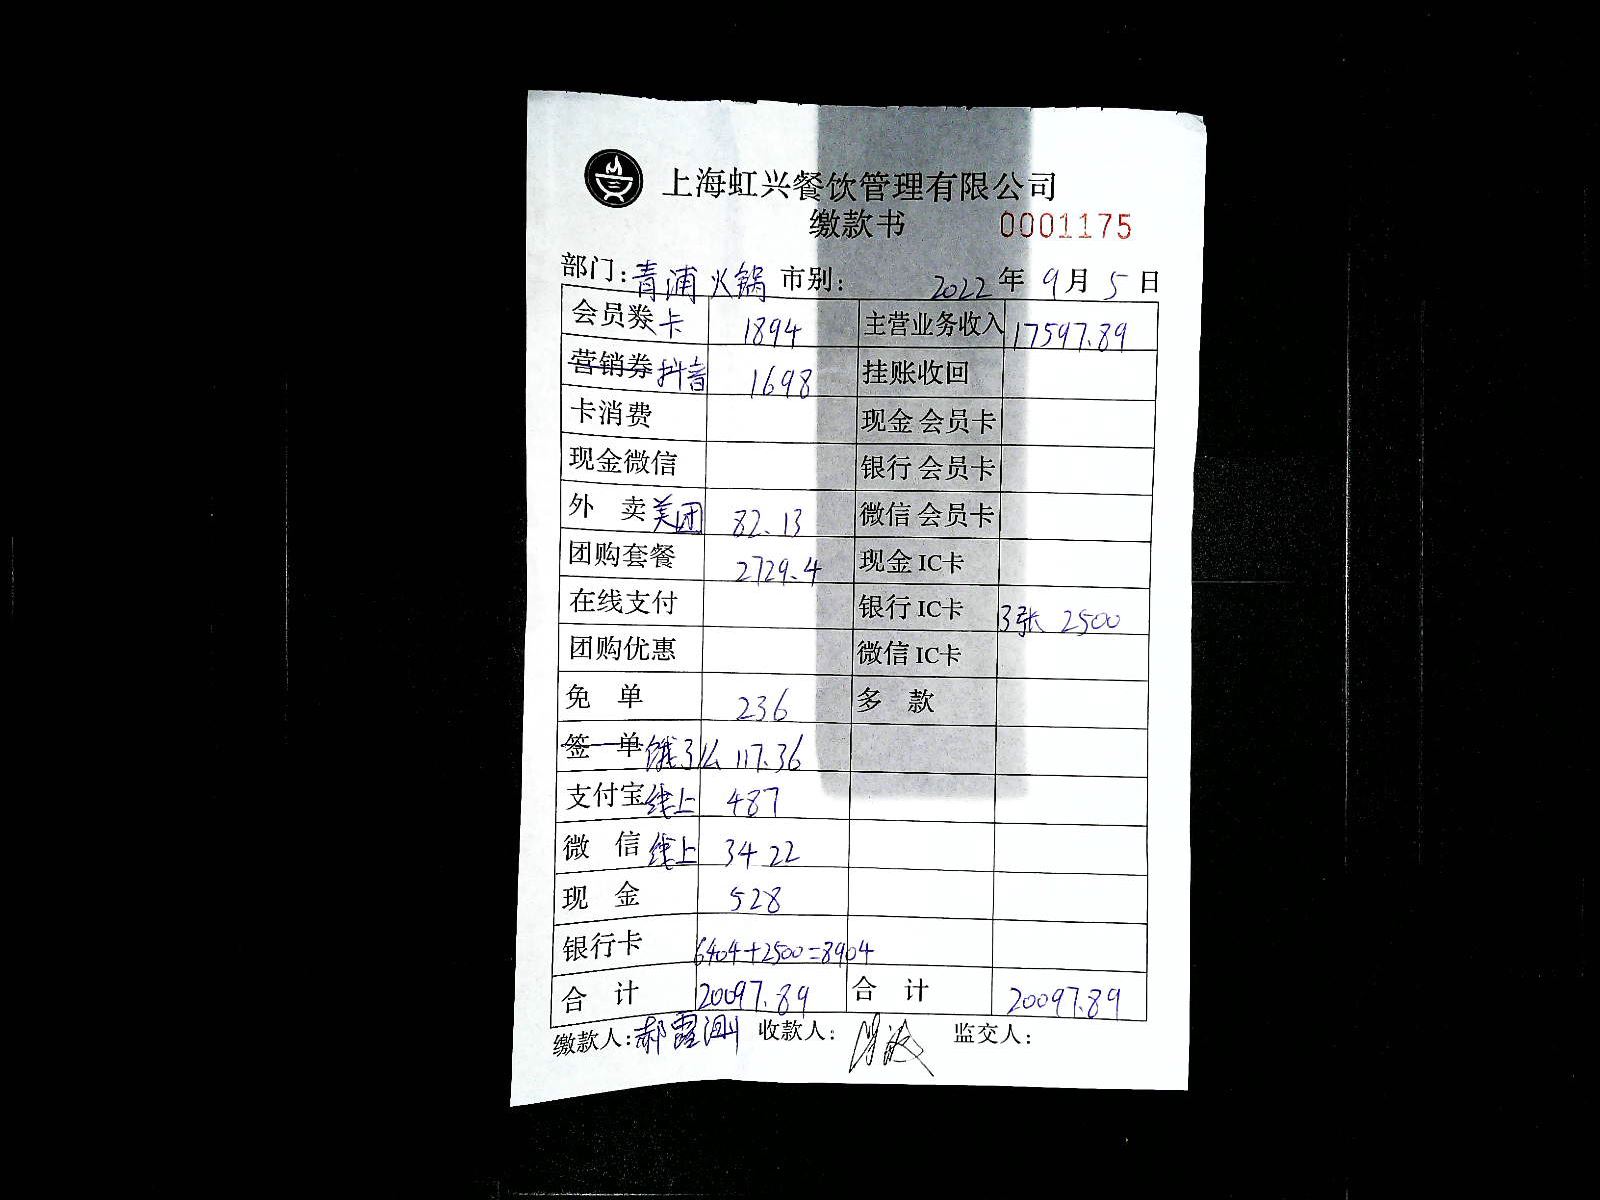 上海虹兴餐饮管理有限公司
缴款书 0001175
部门:青浦火锅 市别: 2022年9月5日
会员券卡 1894 主营业务收入 17597.89
营销券抖音 1698 挂账收回
卡消费 现金会员卡
现金微信 银行会员卡
外卖美团 82.13 微信会员卡
团购套餐 2729.4 现金IC卡
在线支付 银行IC卡 13张 2500
团购优惠 微信IC卡
免单 236 多款
签单饿了么 117.36
支付宝线上 487
微信线上 3422
现金 528
银行卡 6404+2500=8904
合计 20097.89 合计 20097.89
缴款人:郝霞 收款人: 监交人: